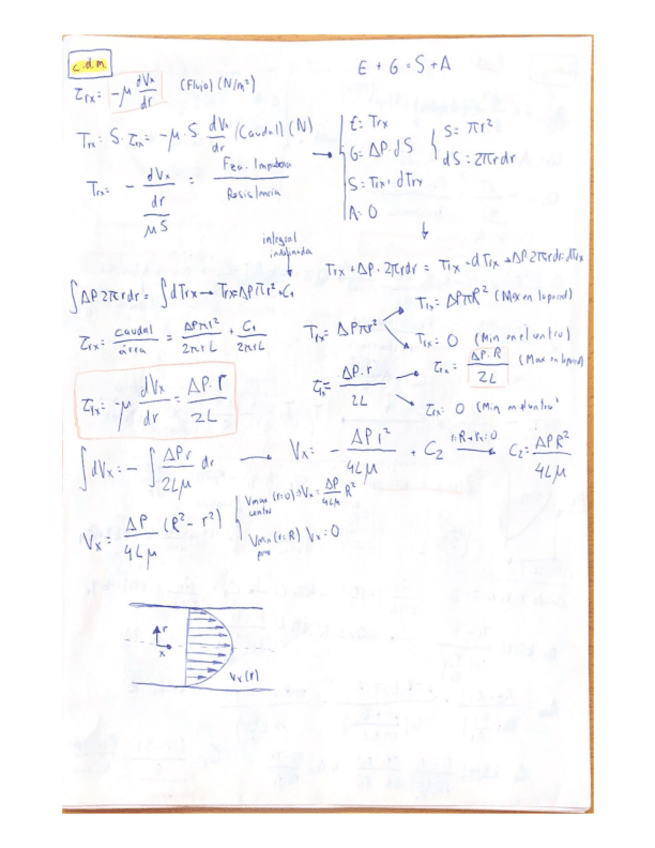 c.d.m
E + G = S + A
τrx = -μ dVx/dr (Flujo) (N/m²)
Trx = S·τrx = -μ·S·dVx/dr (Caudal) (N)
Trx = - (dVx/dr)/μS = Fza. Impulsora/Resistencia
E = Trx
G = ΔP·dS
S = Trx + dTrx
A = 0
S = πr²
dS = 2πrdr
integral indefinida
Trx + ΔP·2πrdr =
∫ΔP2πrdr = ∫dTrx → Trx = ΔPπr² + C₁
τrx = caudal/área = ΔPπr²/2πrL + C₁/2πrL
Trx = ΔPπr²
Trx = ΔPπR² (Max en la pared)
Trx = 0 (Min en el centro)
τrx = -μ dVx/dr = ΔP·r/2L
τrx = ΔP·r/2L
τrx = ΔP·R/2L (Max en la pared)
τrx = 0 (Min en el centro)
∫dVx = -∫ΔPr/2Lμ dr → Vx = -ΔPr²/4Lμ + C₂ → C₂ = ΔPR²/4Lμ
Vx = ΔP/4Lμ (R² - r²)
Vmax (r=0) → Vx = ΔP/4Lμ R²
centro
Vmin (r=R) Vx = 0
r
x
Vx(r)